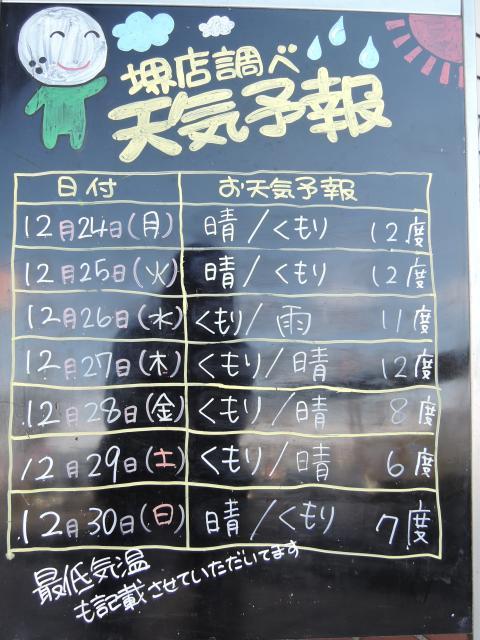 堺店調べ
天気予報
日付 お天気予報
12月24日(月) 晴/くもり 12度
12月25日(火) 晴/くもり 12度
12月26日(水) くもり/雨 11度
12月27日(木) くもり/晴 12度
12月28日(金) くもり/晴 8度
12月29日(土) くもり/晴 6度
12月30日(日) 晴/くもり 7度
最低気温
も記載させていただいてます